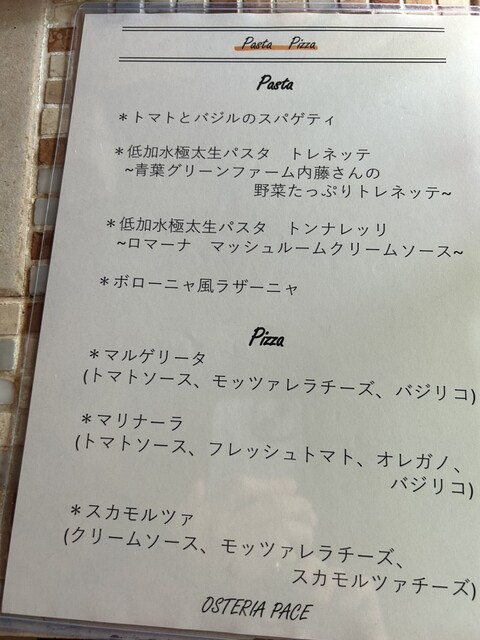 Pasta Pizza
Pasta
＊トマトとバジルのスパゲティ
＊低加水極太生パスタ　トレネッテ
~青葉グリーンファーム内藤さんの
野菜たっぷりトレネッテ~
＊低加水極太生パスタ　トンナレッリ
~ロマーナ　マッシュルームクリームソース~
＊ボローニャ風ラザーニャ
Pizza
＊マルゲリータ
(トマトソース、モッツァレラチーズ、バジリコ)
＊マリナーラ
(トマトソース、フレッシュトマト、オレガノ、
バジリコ)
＊スカモルツァ
(クリームソース、モッツァレラチーズ、
スカモルツァチーズ)
OSTERIA PACE